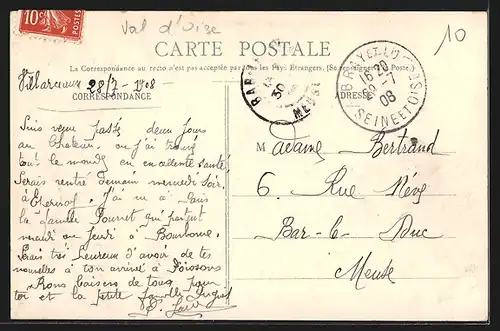 10c
Val d'Oise
10
CARTE POSTALE
La Correspondance au recto n'est pas acceptée par tous les Pays Etrangers. (Se renseigner à la Poste.)
BAR MEUSE
30
BRAY ET LU
16 30
29 -7
08
SEINE ET OISE
28/7 - 1908
CORRESPONDANCE
ADRESSE
Suis venu passé deux jours
au Chateau, ou j'ai trouvé
tout le monde en excellente santé,
Serais rentré demain mercredi soir
à J'ai vu à Paris
la famille qui partent
mercredi ou jeudi à
Serais très heureux d'avoir de tes
nouvelles à ton arrivé à
Bons baisers de tous pour
toi et la petite famille
M adame Bertrand
6. Rue Nève
Bar-le-Duc
Meuse